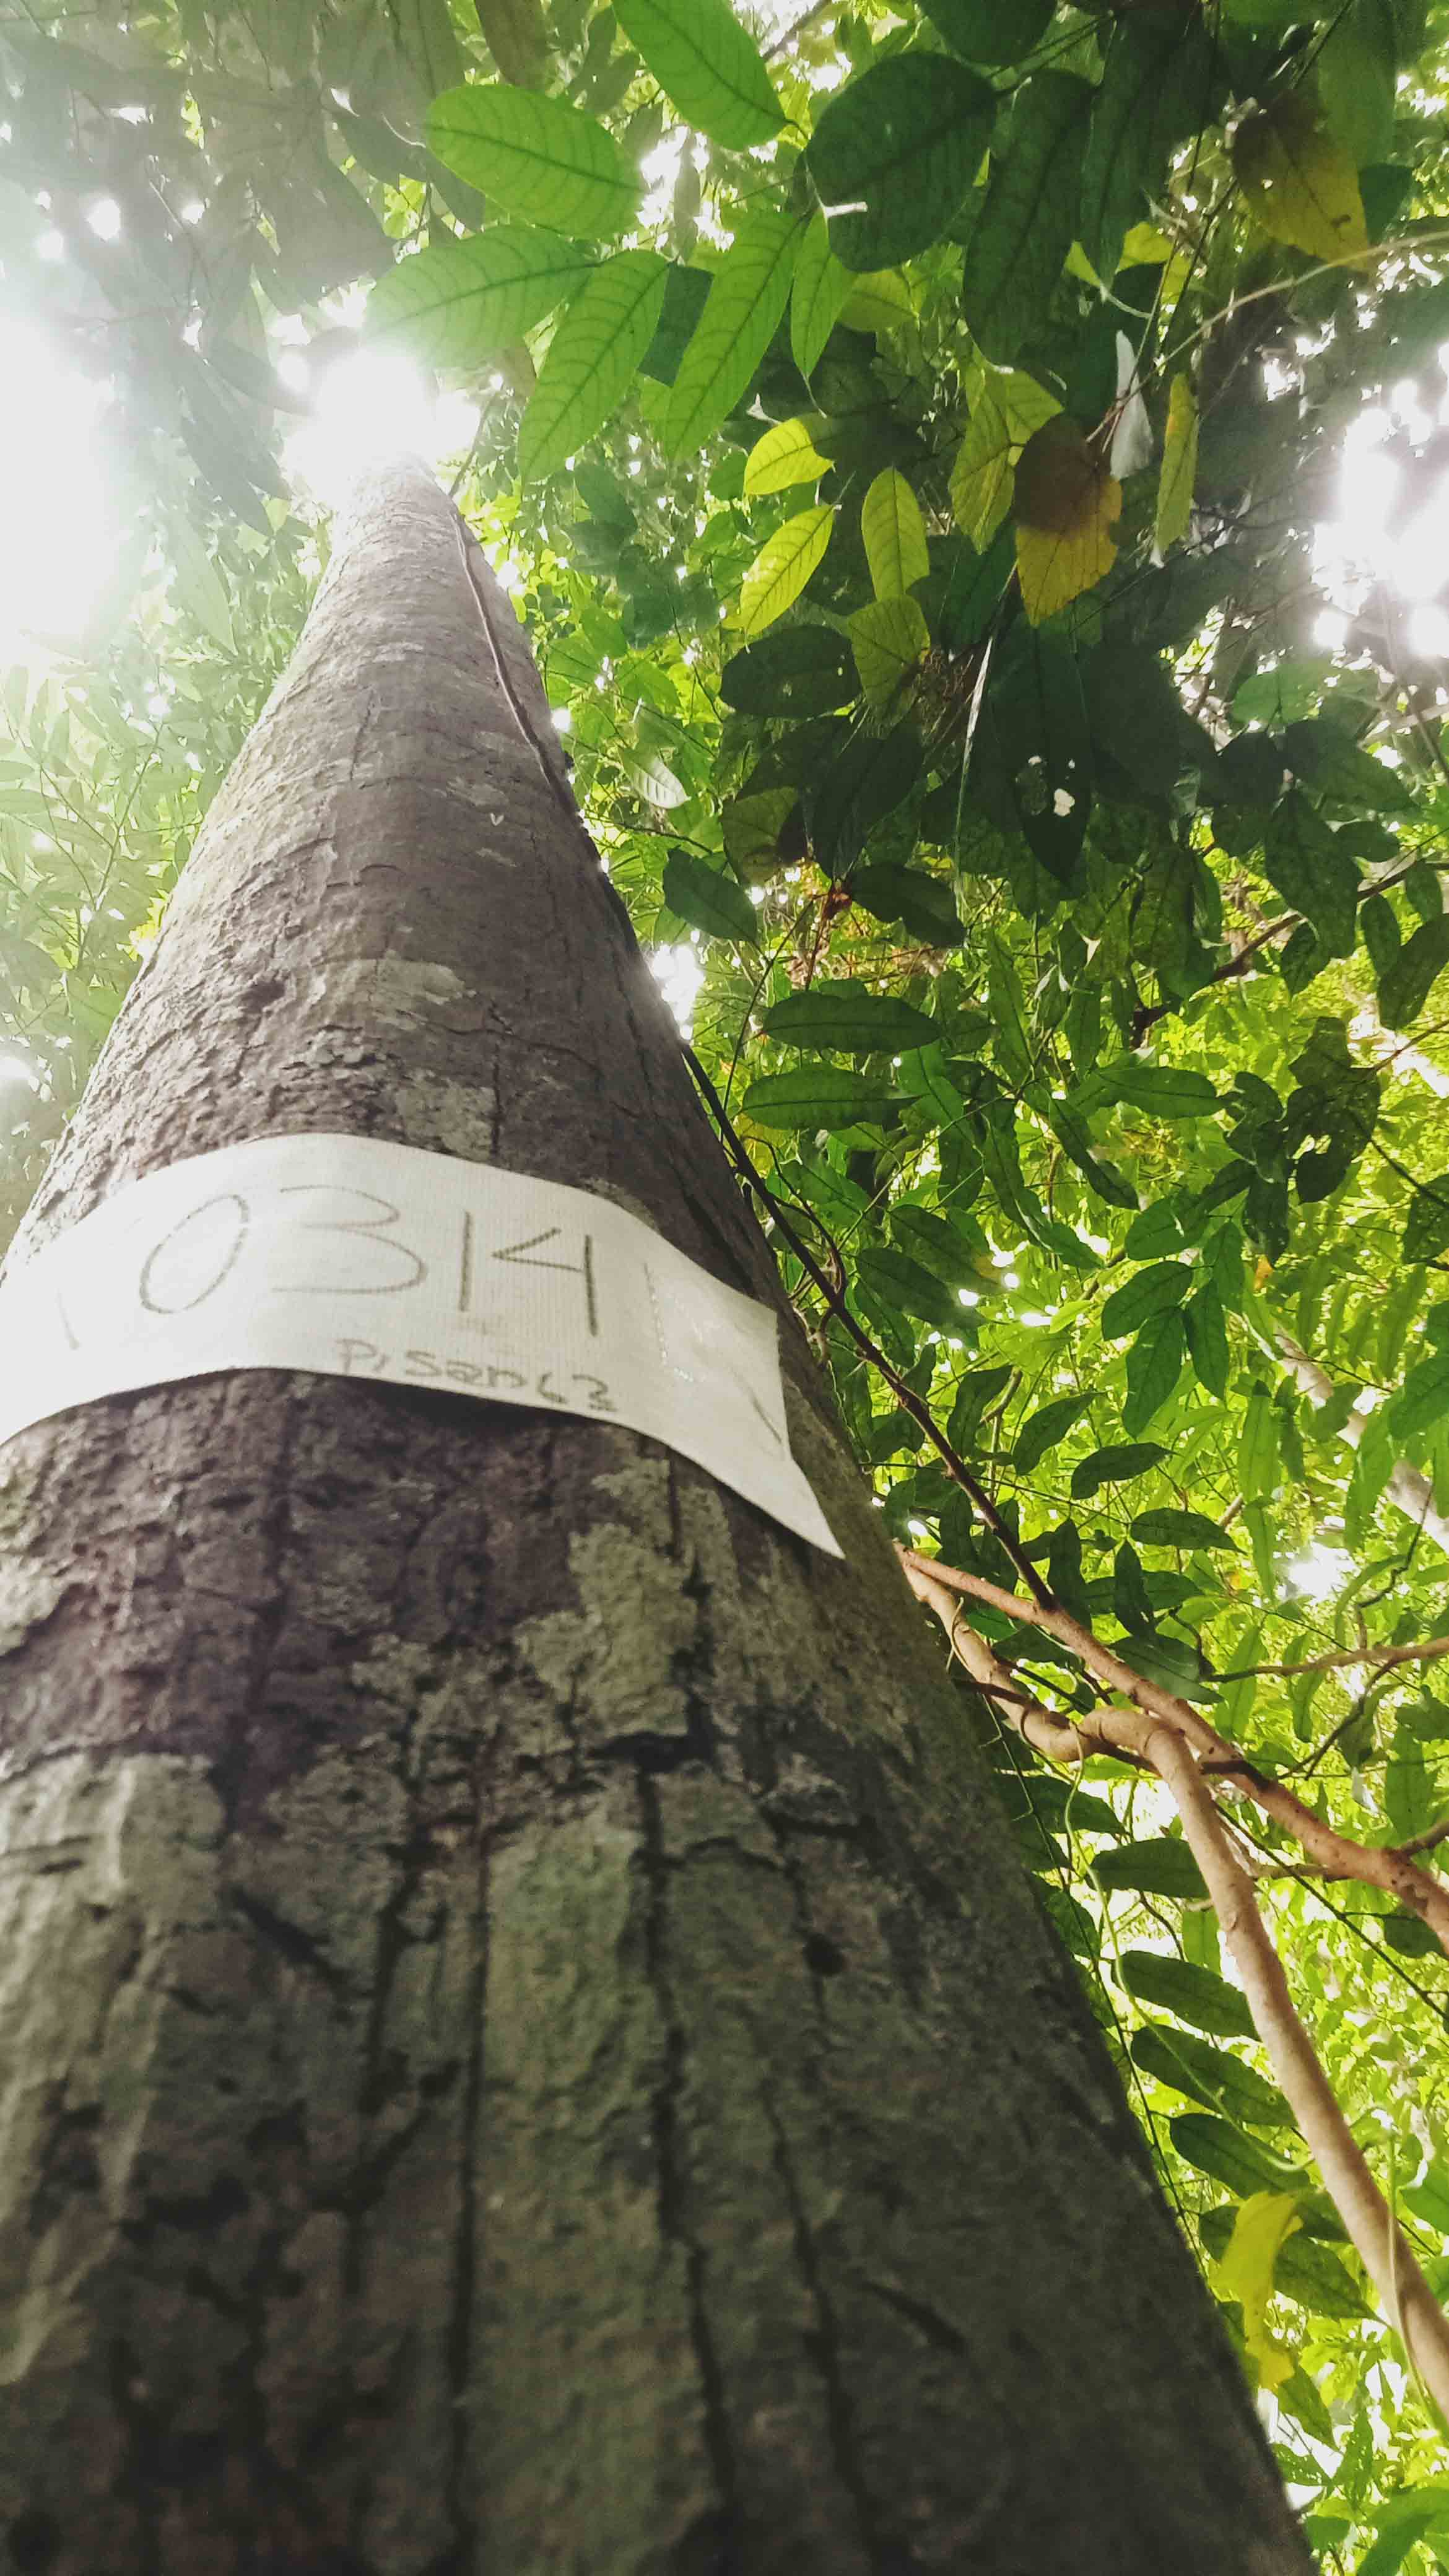 0314
Pisang 63